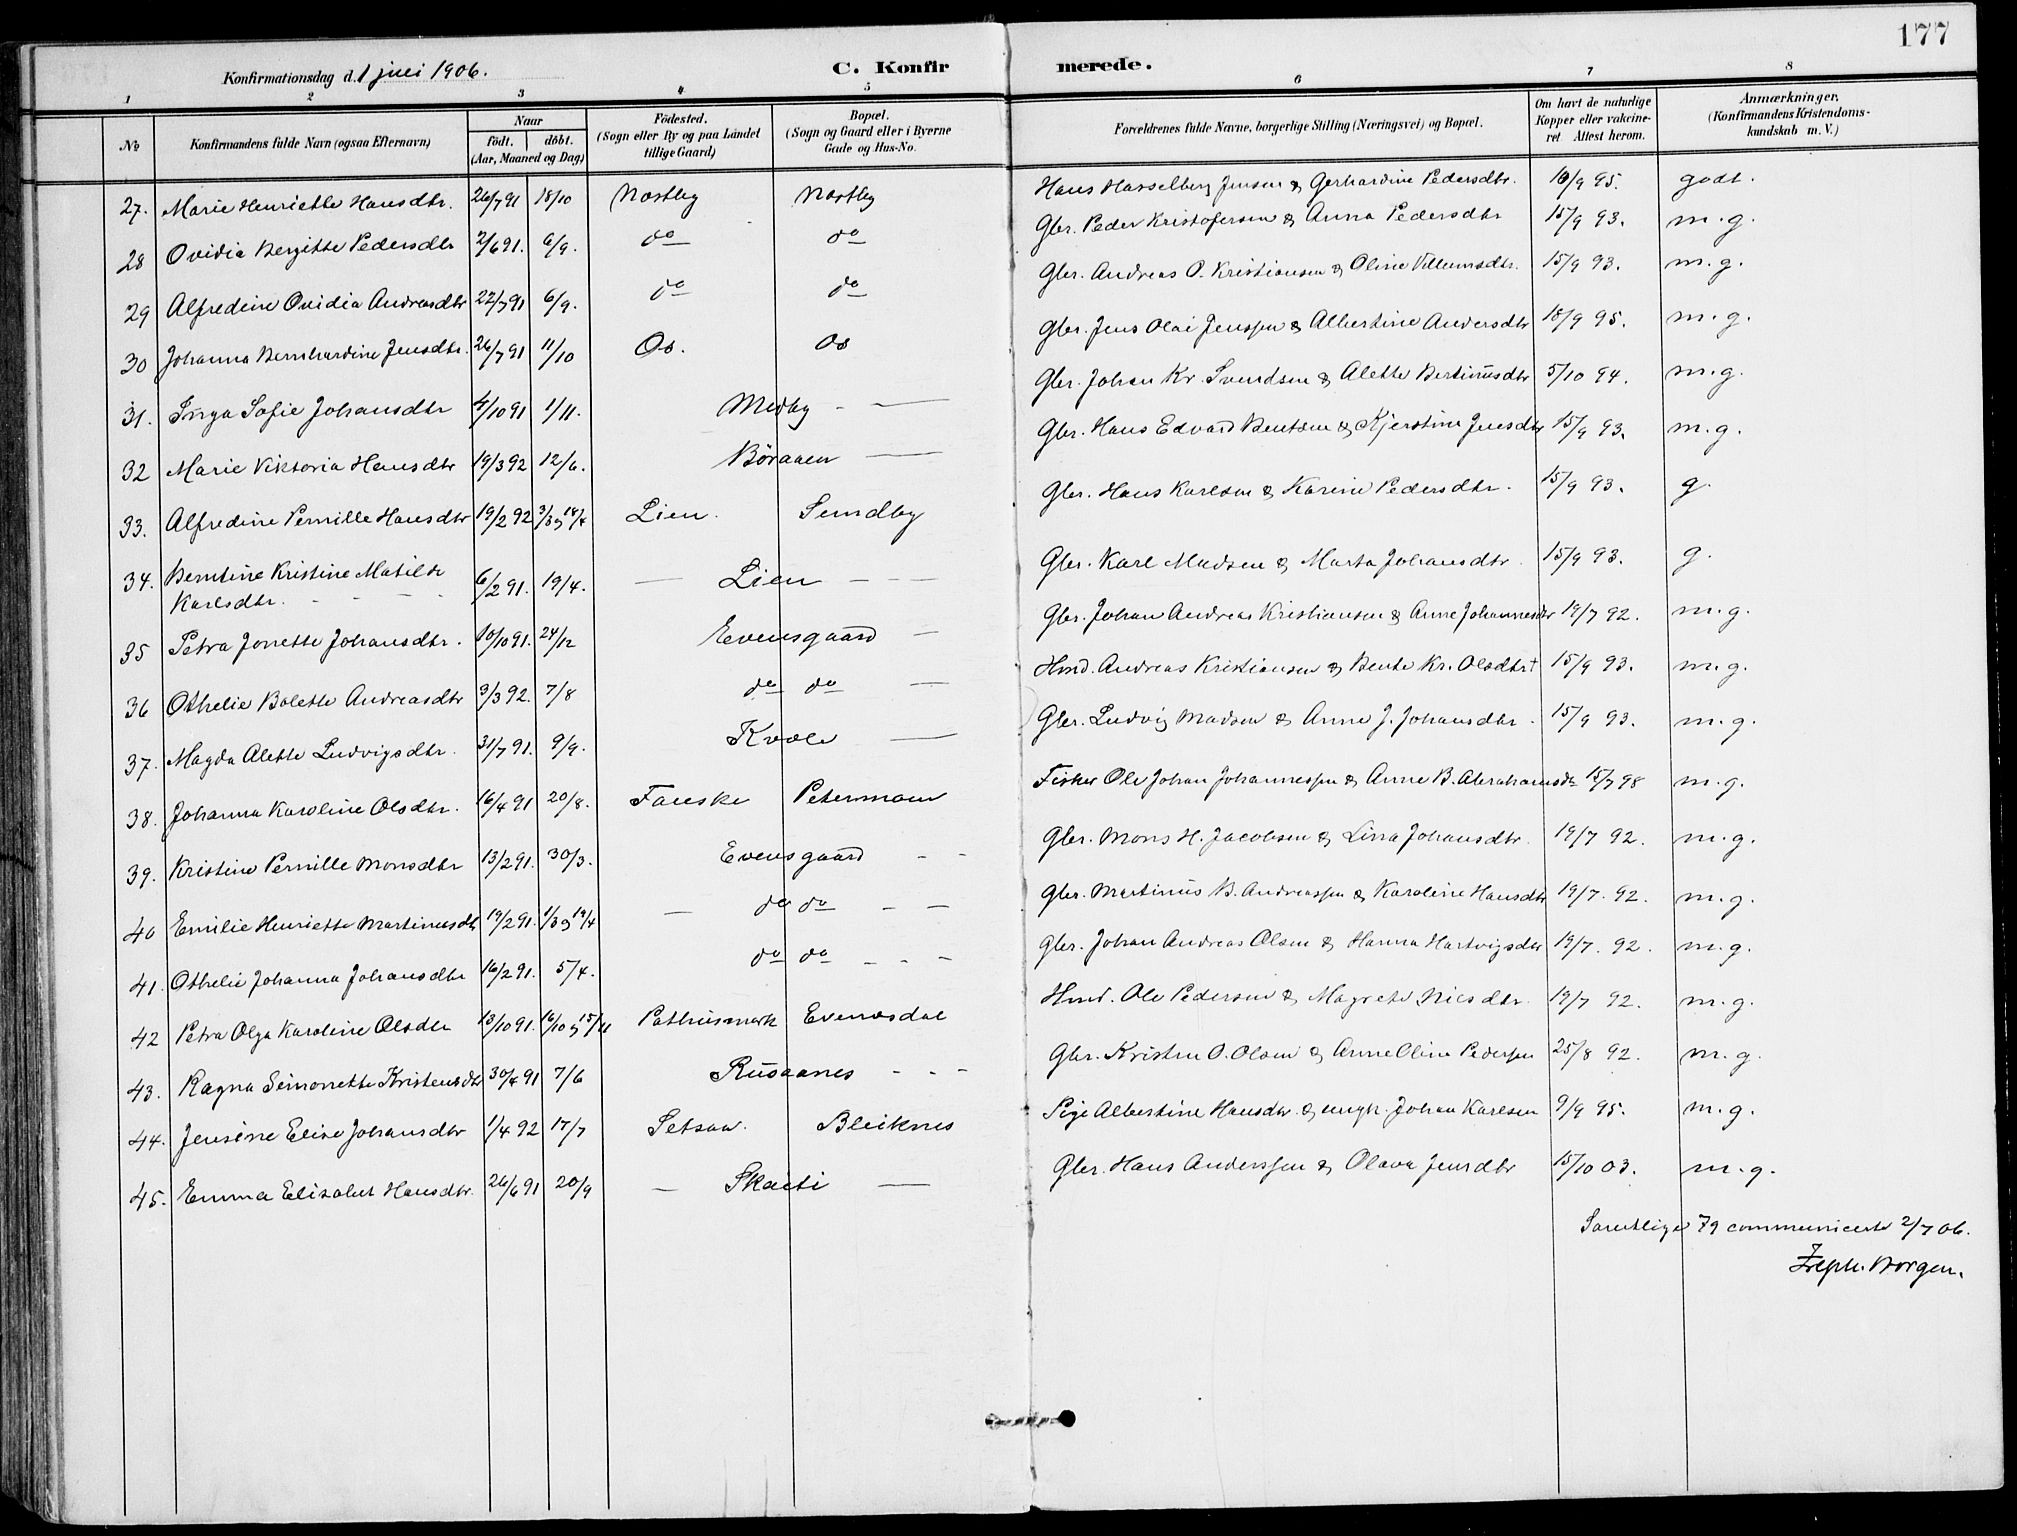 177
Konfirmationsdag d. 1 juli 1906.
C. Konfirmerede.
1 2 3 4 5 6 7 8
No
Konfirmandens fulde Navn (ogsaa Efternavn)
Naar
født. døbt.
(Aar, Maaned og Dag)
Födested.
(Sogn eller By og paa Landet
tillige Gaard)
Bopæl.
(Sogn og Gaard eller i Byerne
Gade og Hus-No.
Forældrenes fulde Navne, borgerlige Stilling (Næringsvei) og Bopæl.
Om havt de naturlige
Kopper eller vakcine-
ret. Attest herom.
Anmærkninger.
(Konfirmandens Kristendoms-
kundskab m. V.)
27. Marie Henriette Hansdtr. 26/7 91 18/10 Nostby Nostby Hans Hasselberg Jensen & Gerhardine Pedersdtr. 10/9 95. godt.
28 Ovidia Bergitte Pedersdtr 2/6 91. 6/9. do do Gbr. Peder Kristofersen & Anna Pedersdtr 15/9 93. m.g.
29 Alfredine Ovidia Andreasdtr 22/7 91 6/9. do do Gbr. Andreas O. Kristiansen & Oline Villumsdtr. 15/9 93. m.g.
30 Johanna Bernhardine Jensdtr. 26/7 91 11/10 Os. Os Gbr. Jens Olai Jenssen & Albertine Andersdtr 10/9 95. m.g.
31. Inga Sofie Johansdtr 4/10 91 1/11. Medby - — Gbr. Johan Kr. Svendsen & Alette Bertinusdtr 5/10 94. m.g.
32 Marie Viktoria Hansdtr 19/3 92 12/6. Böraaen — Gbr. Hans Edvard Bentsen & Kjerstine Jensdtr 15/9 93. m.g.
33. Alfredine Pernille Hansdtr 19/2 92 3/3 & 14/4 Lien. Sundby Gbr. Hans Karlsen & Karine Pedersdtr. 15/9 93. g.
34. Berntine Kristine Matilde
Karlsdtr. 6/2 91. 19/4. — Lien - — Gbr. Karl Madsen & Marta Johansdtr. 15/9 93. g.
35 Petra Jonette Johansdtr. 10/10 91. 24/12 Evensgaard — Gbr. Johan Andreas Kristiansen & Anne Johannesdtr 19/7 92. m.g.
36 Othelie Bolette Andreasdtr 3/3 92. 7/8 do do — Hmd. Andreas Kristiansen & Bente Kr. Olsdtr † 15/9 93. m.g.
37. Magda Alette Ludvigsdtr. 31/7 91. 9/9. Kvale — Gbr. Ludvig Madsen & Anne J. Johansdtr. 15/9 93. m.g.
38. Johanna Karoline Olsdtr. 16/4 91 20/8. Fauske Petermoen Fisker Ole Johan Johannessen & Anne B. Abrahamsdtr 15/7 98 m.g.
39. Kristine Pernille Monsdtr 13/2 91. 30/3. Evensgaard - - Gbr. Mons H. Jacobsen & Lina Johansdtr. 19/7 92. m.g.
40 Emilie Henriette Martinusdtr 19/2 91. 1/3 & 19/4 — do do - — Gbr. Martinus B. Andreassen & Karoline Hansdtr 19/7. 92. m.g.
41. Othelie Johanna Johansdtr 16/2 91. 5/4. do do - - - Gbr. Johan Andreas Olsen & Hanna Hartvigsdtr 19/7. 92. m.g.
42 Petra Olga Karoline Olsdtr 13/10 91. 16/10 & 15/11 Pothusmark Evenesdal Hmd. Ole Pedersen & Magrete Nilsdtr. 19/7 92. m.g.
43. Ragna Simonette Kristensdtr 30/4 91 7/6 Rusaanes - - - Gbr. Kristen O. Olsen & Anne Oline Pedersen 25/8 92. m.g.
44. Jensine Elise Johansdtr 1/4 92 17/7 Setsaa. Bleiknes Pige Albertine Hansdtr. & ungk. Johan Karlsen 9/9 95. m.g.
45. Emma Elisabet Hansdtr. 26/6 91 20/9 — Skaiti — Gbr. Hans Anderssen & Olava Jensdtr 15/10 03. m.g.
Samtlige 79 communicerte 2/7 06.
Zeph. Borgen.